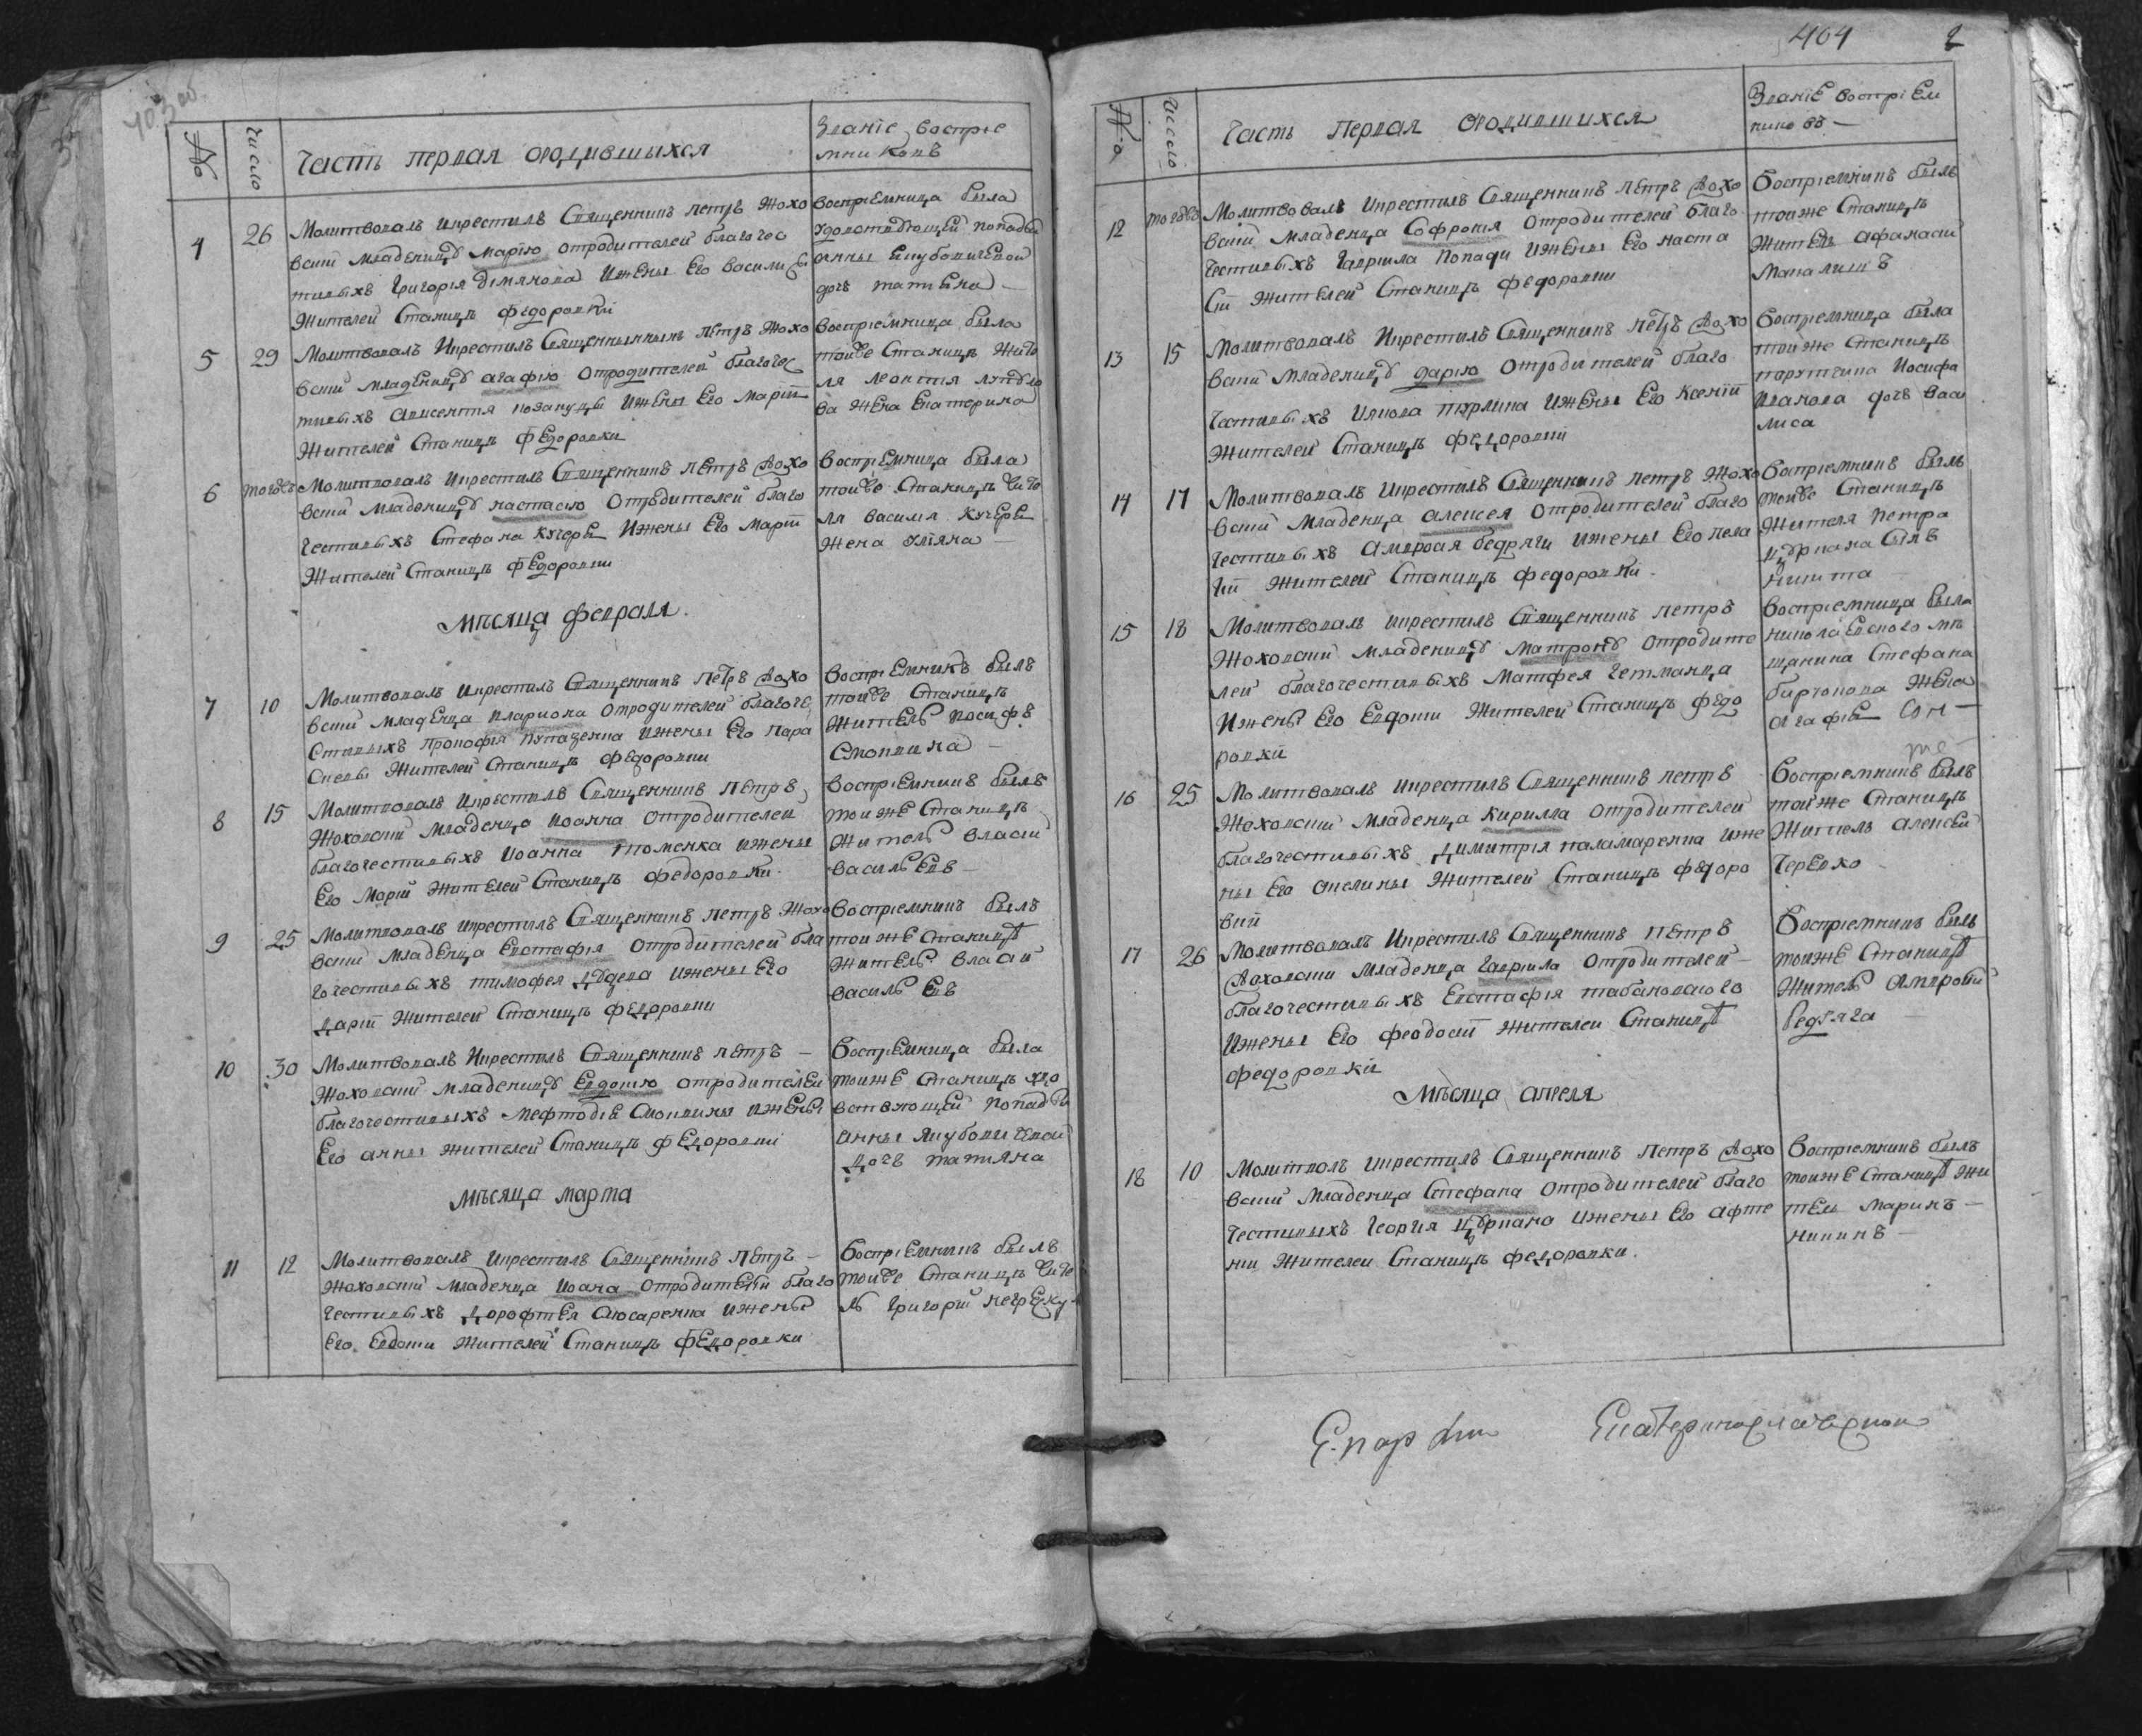 403 об.
№
Число
Часть перваяородившыхся
Званіе воспріе
мниковъ
4
26
Молитвовалъ икрестилъ Священникъ петръ Жохо
вскій младеницу марію отродителей благочес
тивыхъ Григорія демянова ижены его василисы
Жителей Станицы федоровки
воспріемница была
вдовствующей попадьи
анны Якубовичевой
дочъ татіяна
5
29
Молитвовалъ икрестилъ Священникъ петръ Жохо
вскій младеницу агафію отродителей благочес
тивыхъ ижены его маріи
Жителей Станицы федоровки
воспріемница была
тойже Станицы Жите
ля леонтия
ва жена екатерина
6
тогожъ
Молитвовалъ икрестилъ Священникъ петръ Жохо
вскій младеницу настасію отродителей благо
честивыхъ Стефана кучера ижены его марии
Жителей Станицы федоровки
воспріемница была
тойже Станицы жите
ля василя кучера
жена уліяна
мѣсяца февраля
7
10
Молитвовалъ икрестилъ Священникъ петръ Жохо
вскій младенца илариона отродителей благоче
стивыхъ прокофія ижены его пара
скевы Жителей Станицы федоровки
воспріемникъ былъ
тойже Станицы
житель иосифъ
8
15
Молитвовалъ икрестилъ Священникъ петръ
Жоховскій младенца иоанна отродителей
благочестивыхъ иоанна ижены
его маріи жителей Станицы федоровки
воспріемникъ былъ
тойже Станицы
житель власій
васильевъ
9
25
Молитвовалъ икрестилъ Священникъ петръ Жохо
вскій младенца евстафія отродителей бла
гочестивыхъ тимофея дѣдева ижены его
даріи жителей Станицы федоровки
воспріемникъ былъ
тойже Станицы
житель власій
васильевъ
10
30
Молитвовалъ икрестилъ Священникъ петръ
Жоховскій младеницу евдокію отродителей
благочестивыхъ ижены
его анны жителей Станицы федоровки
воспріемница была
тойже Станицы вдо
вствующей попадьи
анны Якубовичевой
дочъ татияна
мѣсяца марта
11
12
Молитвовалъ икрестилъ Священникъ петръ
Жоховскій младенца иоана отродителей благо
честивыхъ дорофтея слюсаренка ижены
его евдокии жителей Станицы федоровки
воспріемникъ былъ
тойже Станицы жите
ль григорій
404 2
№
Число
Часть первая ородившихся
Званіе воспріем
никовъ
12
тогожъ
Молитвовалъ икрестилъ Священникъ петръ Жохо
вскій младенца Софрония отродителей благо
честивыхъ гавриила попади ижены его наста
сіи жителей Станицы федоровки
воспріемникъ былъ
тойже Станицы
житель афанасий
13
15
Молитвовалъ икрестилъ Священникъ петръ Жохо
вскій младеницу дарію отродителей благо
честивыхъ ижены его ксеніи
жителей Станицы федоровки
воспріемница была
тойже Станицы
поручика иосифа
иванова дочъ васи
лиса
14
17
Молитвовалъ икрестилъ Священникъ петръ Жохо
вскій младенца алексея отродителей благо
честивыхъ амвросія бедряги ижены его пела
гіи жителей Станицы федоровки
воспріемникъ былъ
тойже Станицы
жителя петра
цуркана сынъ
никита
15
18
Молитвовалъ икрестилъ Священникъ петръ
Жоховскій младеницу матрону отродите
лей благочестивыхъ матфея гетманца
ижены его евдокии жителей Станицы федо
ровки
воспріемница была
николаевского мѣ
щанина Стефана
бирюкова жена
агафія
16
25
Молитвовалъ икрестилъ Священникъ петръ
Жоховскій младенца кирилла отродителей
благочестивыхъ димитрія паламаренка иже
ны его акилины жителей Станицы федоро
вки
воспріемникъ былъ
тойже Станицы
житель алексей
черевко
17
26
Молитвовалъ икрестилъ Священникъ петръ
Жоховскій младенца гавриила отродителей
благочестивыхъ евстафія табановского
ижены его феодосіи жителей Станицы
федоровки
воспріемникъ былъ
тойже Станицы
житель амвросій
бедряга
мѣсяца апреля
18
10
Молитвовалъ икрестилъ Священникъ петръ Жохо
вскій младенца Стефана отродителей благо
честивыхъ георгія цуркана ижены его афте
нии жителей Станицы федоровки.
воспріемникъ былъ
тойже Станицы жи
тель маринъ
Епархии Екатеринославской